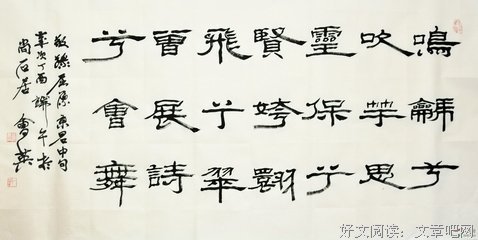 鳴䶵兮
吹竽思
靈保兮
賢姱翾
飛兮翠
曾展詩
兮會舞
敬録屈原東君中句
歲次丁酉端午於
尚石居 會英
好文阅读：文章吧网